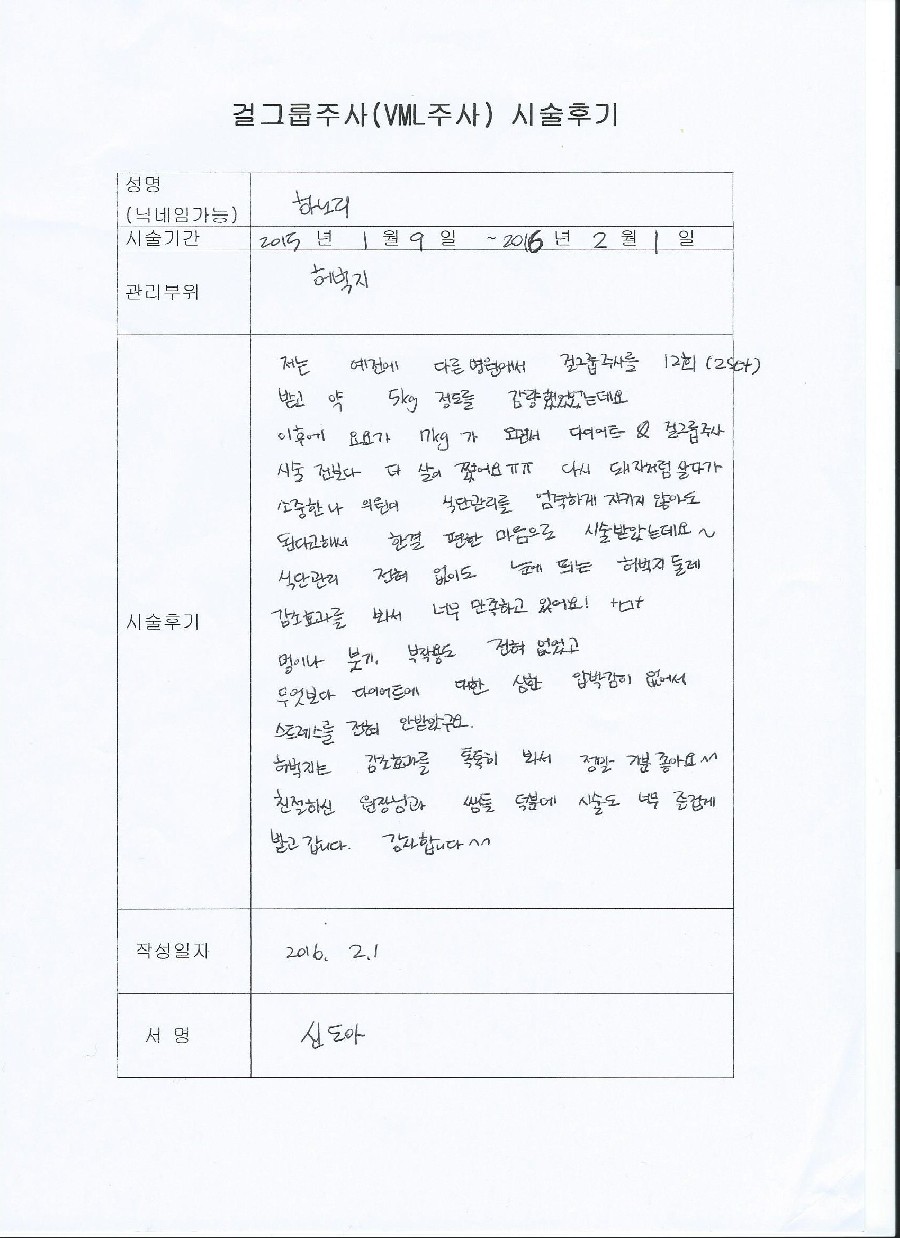 걸그룹주사(VML주사) 시술후기
성명
(닉네임가능)
하노리
시술기간 2015 년 1 월 9 일 ~2016 년 2 월 1 일
관리부위 허벅지
시술후기
저는 예전에 다른 병원에서 걸그룹주사를 12회
받고 약 5kg 정도를 감량했었는데요
이후에 요요가 17kg 가 다이어트 & 걸그룹주사
시술 전보다 더 살이 쪘어요ㅠㅠ 다시 돼지처럼 살다가
소중한나 의원이 식단관리를 엄격하게 지키지 않아도
된다고해서 한결 편한 마음으로 시술받았는데요~
식단관리 전혀 없이도 눈에 띄는 허벅지 둘레
감소효과를 봐서 너무 만족하고 있어요! +ㅁ+
멍이나 붓기, 부작용도 전혀 없었고
무엇보다 다이어트에 대한 심한 압박감이 없어서
스트레스를 전혀 안받았구요.
허벅지는 감소효과를 톡톡히 봐서 정말 기분 좋아요^^
친절하신 원장님과 쌤들 덕분에 시술도 너무 즐겁게
받고 갑니다. 감사합니다^^
작성일자 2016. 2.1
서 명 신도아